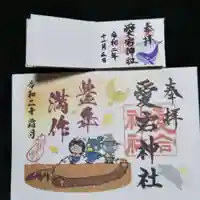 奉拝
愛宕神社
令和二年
十一月三日
奉拝
愛宕神社
豊年
満作
令和二年霜月